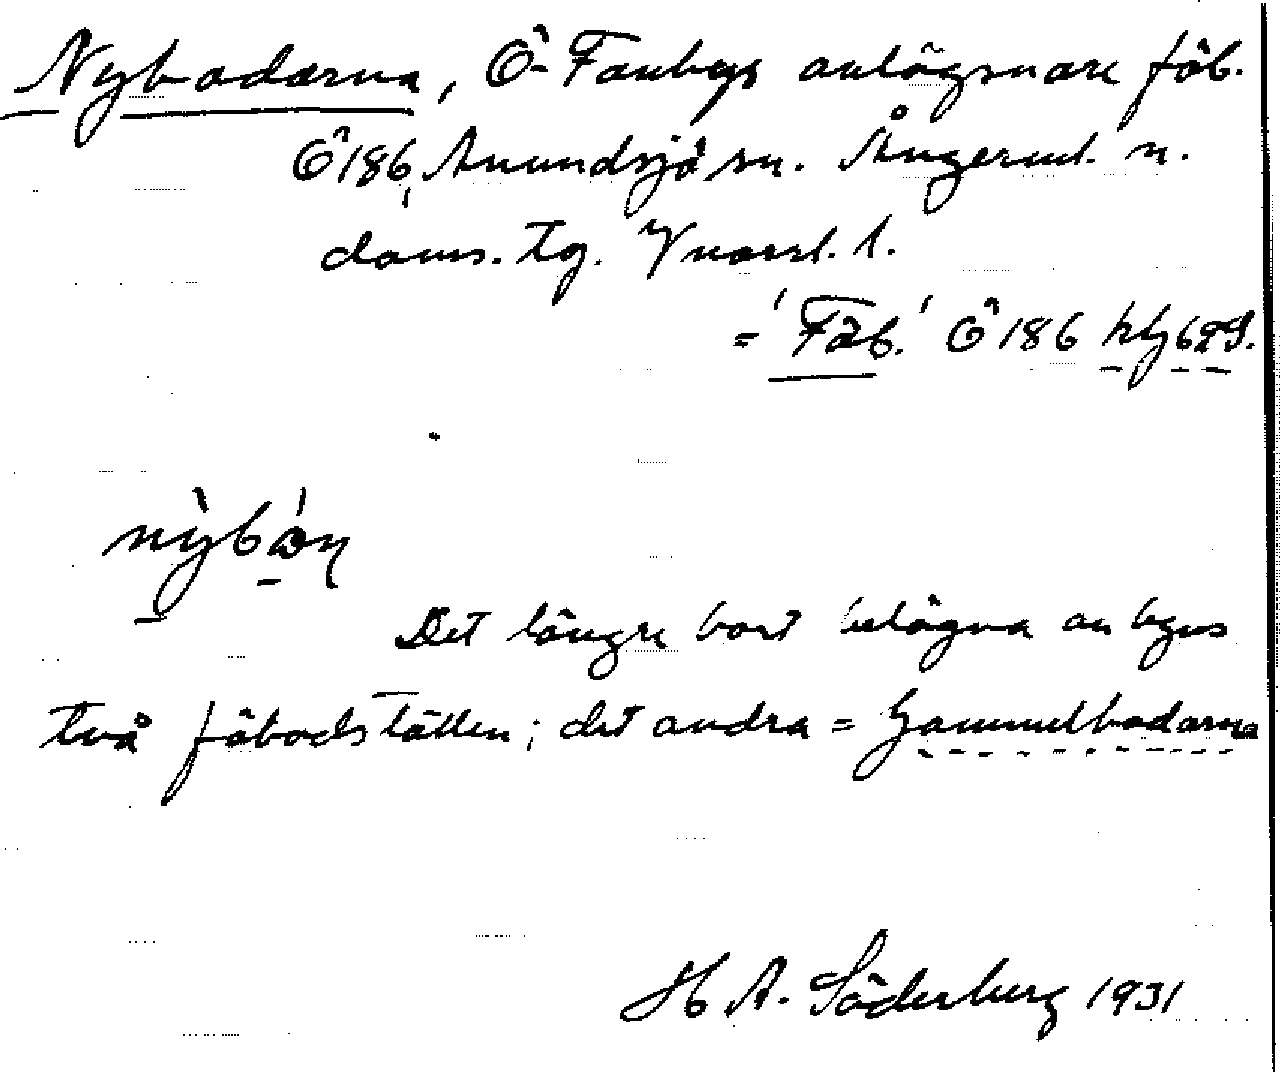 Nybodarna, Ö-Fanbyns avlägsnare fäb.
Ö186, Anundsjö sn. Ångerml. n.
doms. tg. Vnorrl. l.
= 'Fäb.' Ö186 hbg 629.
nỳbón
Det längre bort belägna av byns
två fäbodställen; det andra = Gammelbodarna
H A. Söderberg 1931